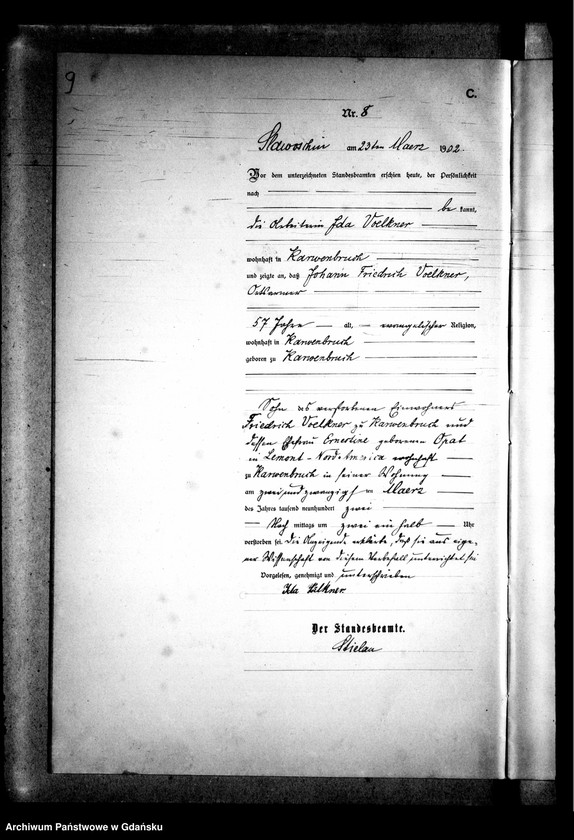 9
C.
Nr. 8
Slawoschin am 23ten Maerz 1902.
Vor dem unterzeichneten Standesbeamten erschien heute, der Persönlichkeit
nach
be kannt,
die Arbeiterin Ida Voelkner
wohnhaft in Karwenbruch
und zeigte an, daß Johann Friedrich Voelkner,
Ortsarmer
57 Jahre alt, evangelischer Religion,
wohnhaft in Karwenbruch
geboren zu Karwenbruch
Sohn des verstorbenen Einwohners
Friedrich Voelkner zu Karwenbruch und
dessen Ehefrau Ernestine geborenen Opat
in Lemont-Nordamerica wohnhaft
zu Karwenbruch in seiner Wohnung
am zwei und zwanzigsten Maerz
des Jahres tausend neunhundert zwei
Nach mittags um zwei ein halb Uhr
verstorben sei. Die Anzeigende erklärte, daß sie aus eige-
ner Wissenschaft von diesem Sterbefall unterrichtet sei
Vorgelesen, genehmigt und unterschrieben
Ida Völkner.
Der Standesbeamte.
Stielau
Archiwum Państwowe w Gdańsku